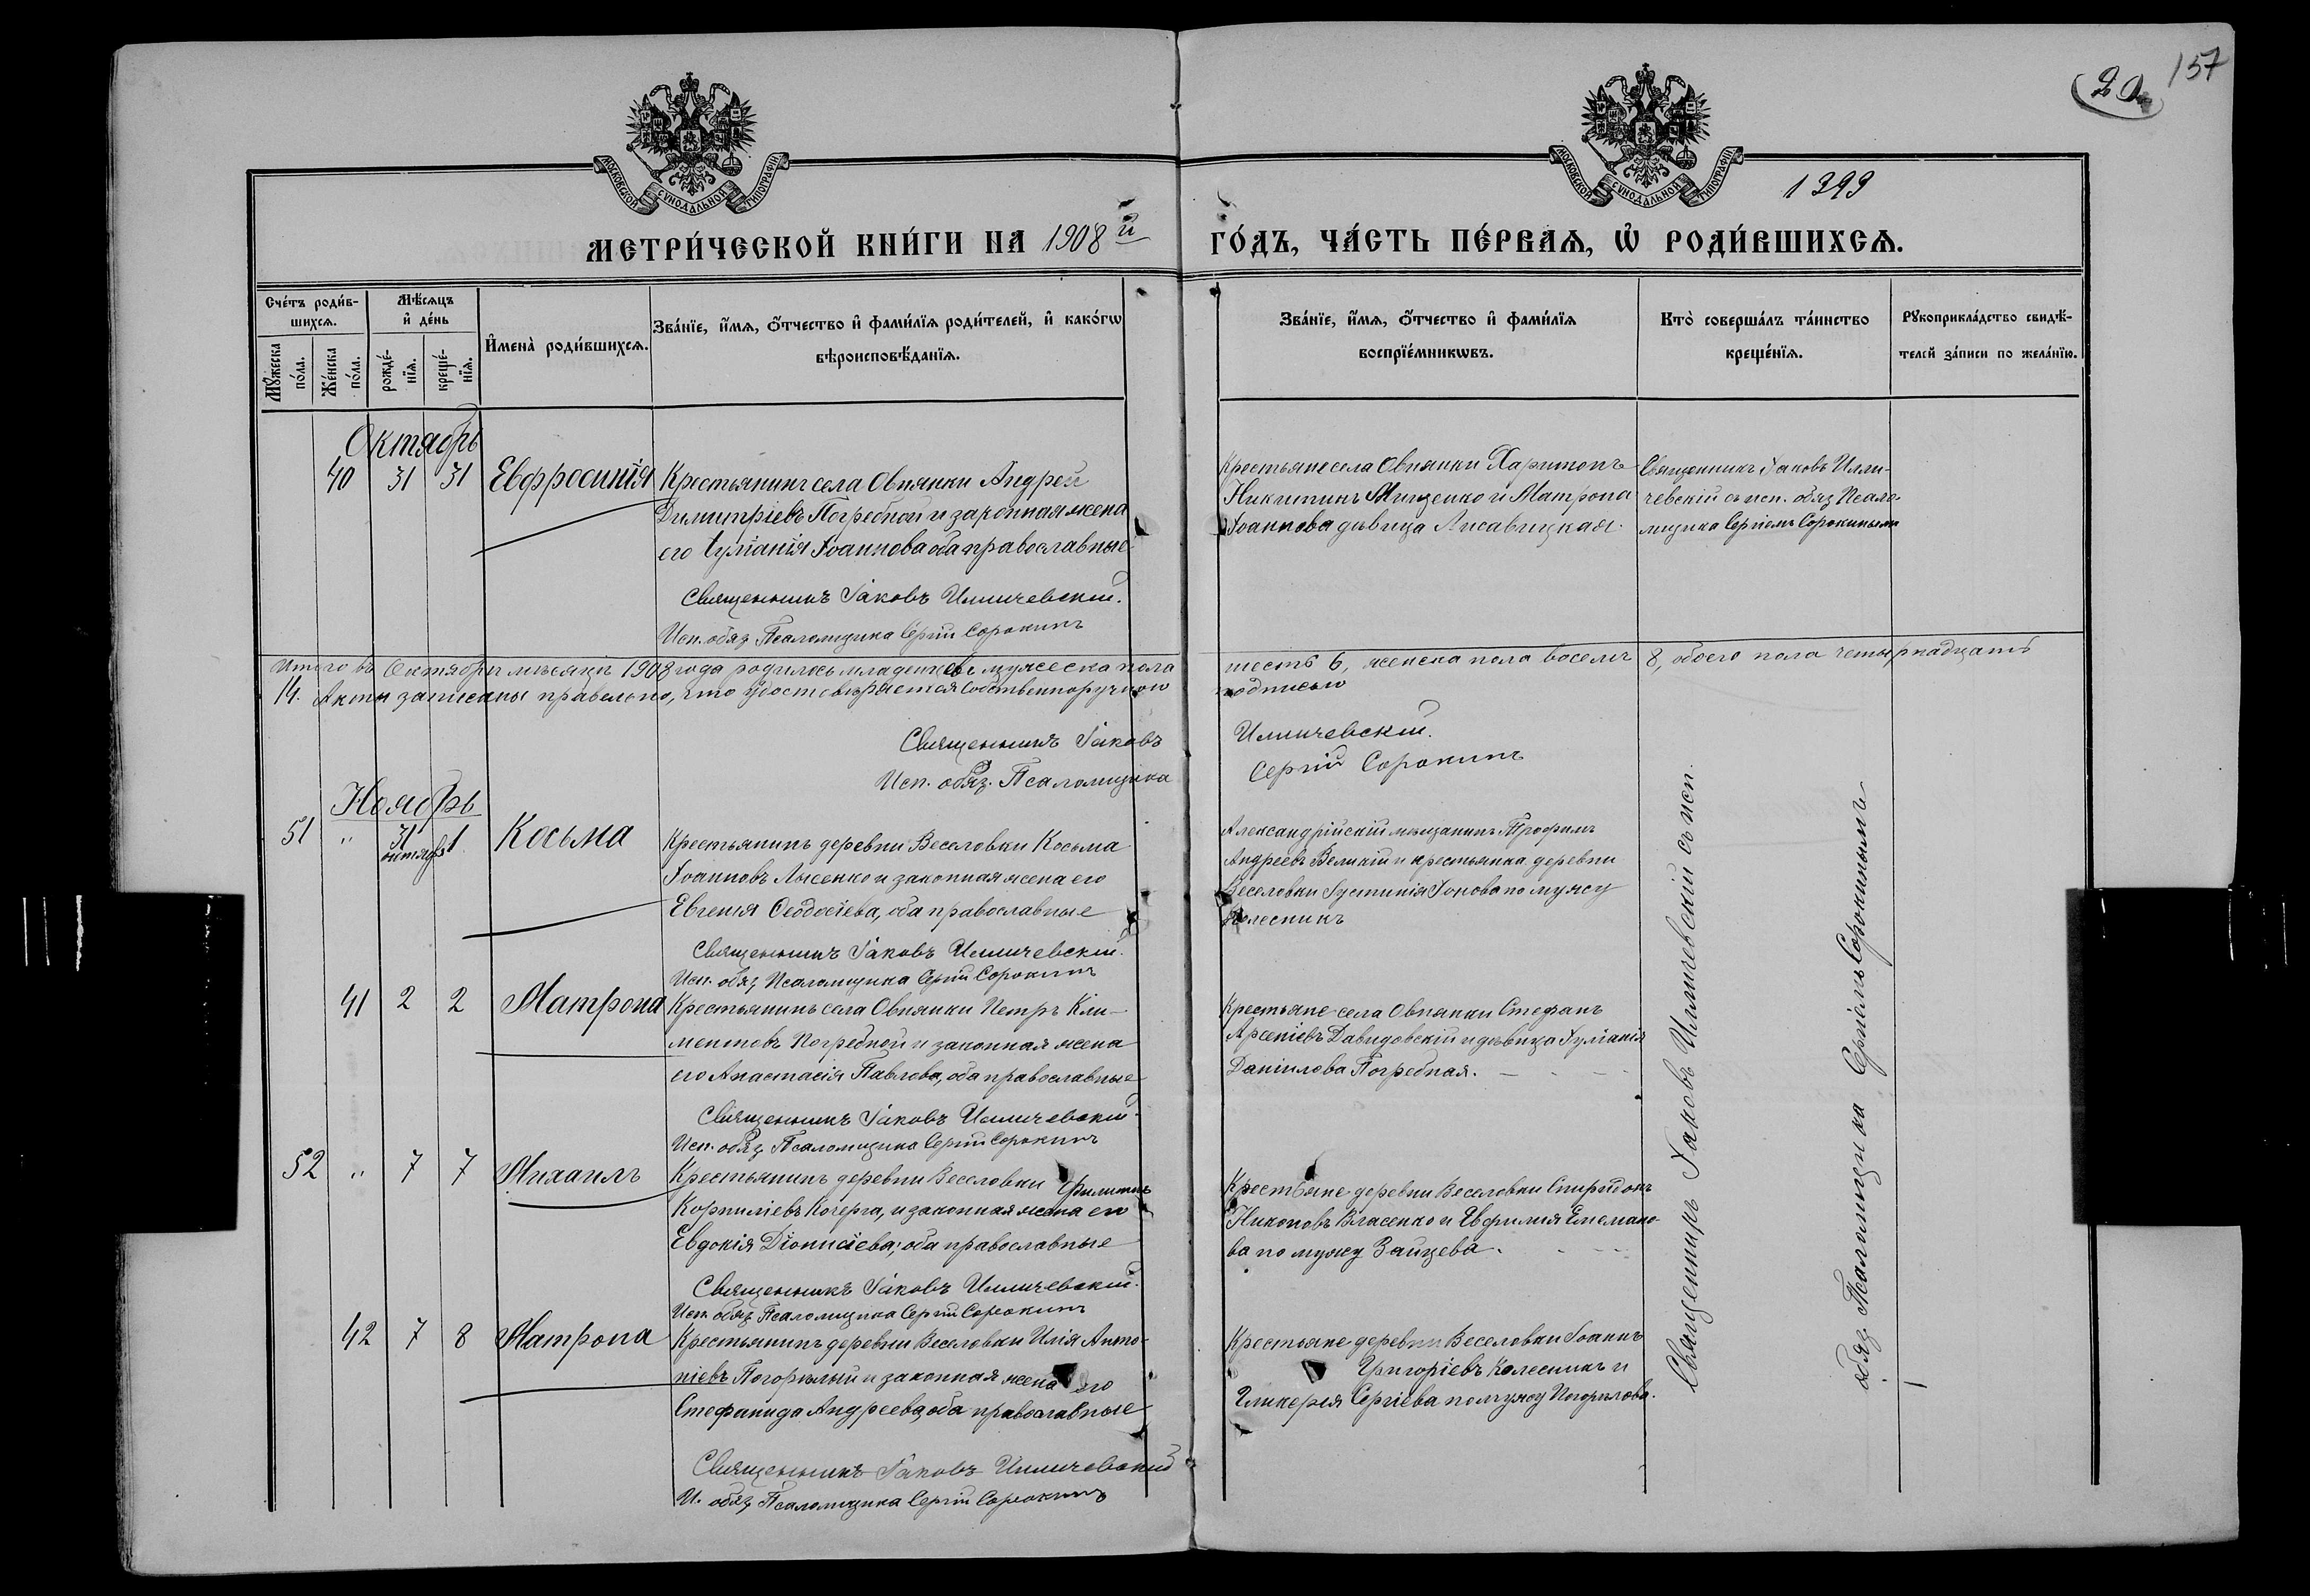 157
20
МОСКОВСКОЙ СѴНОДАЛЬНОЙ ТИПОГРАФІИ
МОСКОВСКОЙ СѴНОДАЛЬНОЙ ТИПОГРАФІИ
1399
МЕТРИ́ЧЕСКОЙ КНИ́ГИ НА 1908й
ГО́ДЪ, ЧА́СТЬ ПЕ́РВАѦ, Ѡ҆ РОДИ́ВШИХСѦ.
Сче́тъ роди́в-
шихсѧ.
Мѣ́сѧцъ
и҆ де́нь
И҆мена̀ роди́вшихсѧ.
Зва́нїе, и҆́мѧ, ѻ҆́тчество и҆ фами́лїѧ роди́телей, и҆ како́гѡ
вѣроисповѣ́данїѧ.
Мꙋ́жеска
по́ла.
Же́нска
по́ла.
рожде́-
нїѧ.
креще́-
нїѧ.
Зва́нїе, и҆́мѧ, ѻ҆́тчество и҆ фами́лїѧ
воспрїе́мникѡвъ.
Кто̀ соверша́лъ та́инство
креще́нїѧ.
Рꙋкоприкла́дство свидѣ́-
телей за́писи по жела́нїю.
Октябрь
40 31 31 Евфросинія Крестьянинъ села Овнянки Андрей
Димитріевъ Погребной и законная жена
его Іуліанія Іоаннова оба православные
Священникъ Іаковъ Илличевскій.
Исп. обяз. Псаломщика Сергій Сорокинъ
Крестьяне села Овнянки Харитонъ
Никитинъ Мищенко и Матрона
Іоаннова дѣвица Лисавицкая.
Священникъ Іаковъ Илли-
чевскій съ исп. обяз. Псало-
мщика Сергіемъ Сорокинымъ
Итого въ Октябрѣ мѣсяцѣ 1908 года родилось младенцевъ мужеска пола
шесть 6, женска пола восемь 8, обоего пола четырнадцать
14. Акты записаны правельно, что удостовѣряется собственноручною
подписью
Священникъ Іаковъ
Илличевскій.
Исп. обяз. Псаломщика
Сергій Сорокинъ
Ноябрь
51 " 31 октября 1 Косьма Крестьянинъ деревни Веселовки Косьма
Іоанновъ Лысенко и законная жена его
Евгенія Ѳеодосіева, оба православные
Священникъ Іаковъ Илличевскій.
Исп. обяз. Псаломщика Сергій Сорокинъ
Александрійскій мѣщанинъ Трофимъ
Андреевъ Великій и крестьянка деревни
Веселовки Іустинія Іонова по мужу
Колесникъ
41 2 2 Матрона Крестьянинъ села Овнянки Петръ Кли-
ментовъ Погребной и законная жена
его Анастасія Павлова, оба православные
Священникъ Іаковъ Илличевскій.
Исп. обяз. Псаломщика Сергій Сорокинъ
Крестьяне села Овнянки Стефанъ
Арсеніевъ Давидовскій и дѣвица Іуліанія
Даніилова Погребная.
52 " 7 7 Михаилъ Крестьянинъ деревни Веселовки Филиппъ
Корниліевъ Кочерга, и законная жена его
Евдокія Діонисіева; оба православные
Священникъ Іаковъ Илличевскій.
Исп. обяз. Псаломщика Сергій Сорокинъ
Крестьяне деревни Веселовки Спиридонъ
Никоновъ Власенко и
ва по мужу Зайцева.
42 7 8 Матрона Крестьянинъ деревни Веселовки Илія Анто-
ніевъ Погорѣлый и законная жена его
Стефанида Андреева, оба православные
Священникъ Іаковъ Илличевскій
И. обяз. Псаломщика Сергій Сорокинъ
Крестьяне деревни Веселовки Іоаннъ
Григоріевъ Колесникъ и
Гликерія Сергіева по мужу Погорѣлова.
Священникъ Іаковъ Илличевскій съ исп.
обяз. Псаломщика Сергіемъ Сорокинымъ